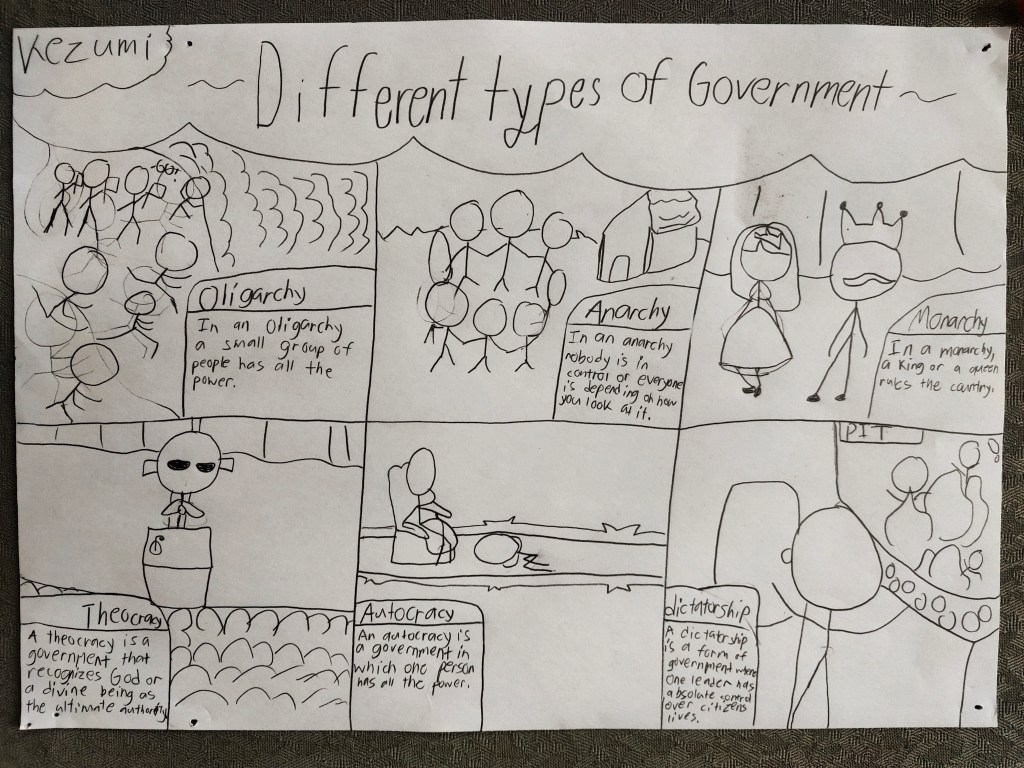 Kezumi
Different types of Government
Oligarchy
In an Oligarchy
a small group of
people has all the
power.
Anarchy
In an anarchy
nobody is in
control or everyone
is depending on how
you look at it.
Monarchy
In a monarchy,
a king or a queen
rules the country.
Theocracy
A theocracy is a
government that
recognizes God or
a divine being as
the ultimate authority
Autocracy
An autocracy is
a government in
which one person
has all the power.
PIT
dictatorship
A dictatorship
is a form of
government where
One leader has
absolute control
over citizens
lives.